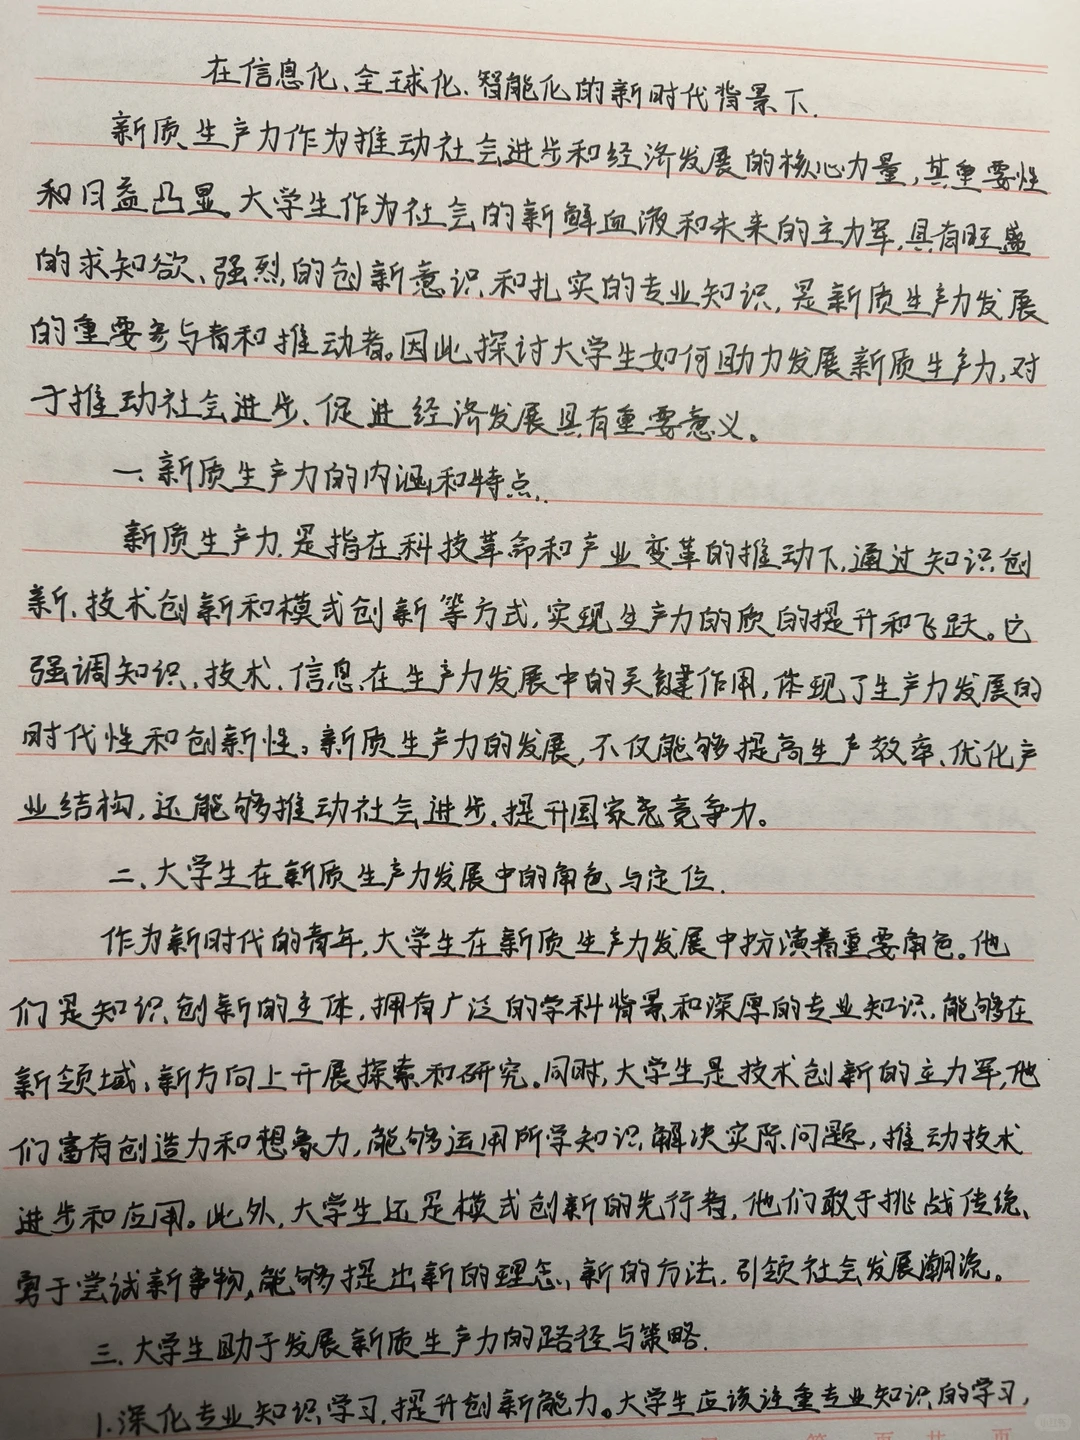 在信息化、全球化、智能化的新时代背景下.
新质生产力作为推动社会进步和经济发展的核心力量,其重要性
和日益凸显。大学生作为社会的新鲜血液和未来的主力军,具有旺盛
的求知欲、强烈的创新意识和扎实的专业知识,是新质生产力发展
的重要参与者和推动者。因此,探讨大学生如何助力发展新质生产力,对
于推动社会进步、促进经济发展具有重要意义。
一、新质生产力的内涵和特点.
新质生产力是指在科技革命和产业变革的推动下,通过知识创
新、技术创新和模式创新等方式,实现生产力的质的提升和飞跃。它
强调知识、技术、信息在生产力发展中的关键作用,体现了生产力发展的
时代性和创新性。新质生产力的发展,不仅能够提高生产效率、优化产
业结构,还能够推动社会进步、提升国家竞争力。
二、大学生在新质生产力发展中的角色与定位.
作为新时代的青年,大学生在新质生产力发展中扮演着重要角色。他
们是知识创新的主体,拥有广泛的学科背景和深厚的专业知识,能够在
新领域、新方向上开展探索和研究。同时,大学生是技术创新的主力军,他
们富有创造力和想象力,能够运用所学知识解决实际问题,推动技术
进步和应用。此外,大学生还是模式创新的先行者,他们敢于挑战传统、
勇于尝试新事物,能够提出新的理念、新的方法,引领社会发展潮流。
三、大学生助于发展新质生产力的路径与策略.
1.深化专业知识学习,提升创新能力。大学生应该注重专业知识的学习,
第 页 共 页